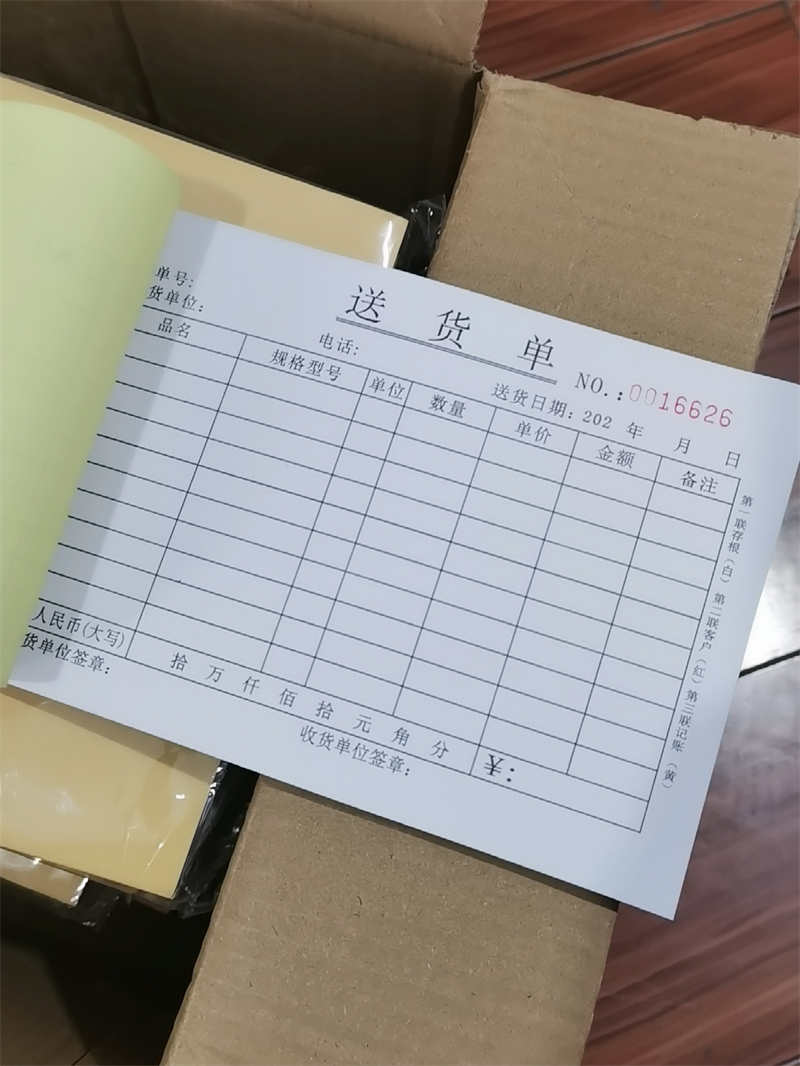 送货单
NO.:0016626
单号:
货单位:
电话:
送货日期:202 年 月 日
品名 规格型号 单位 数量 单价 金额 备注
人民币(大写) 拾 万 仟 佰 拾 元 角 分 ¥:
货单位签章: 收货单位签章:
第一联存根(白) 第二联客户(红) 第三联记账(黄)